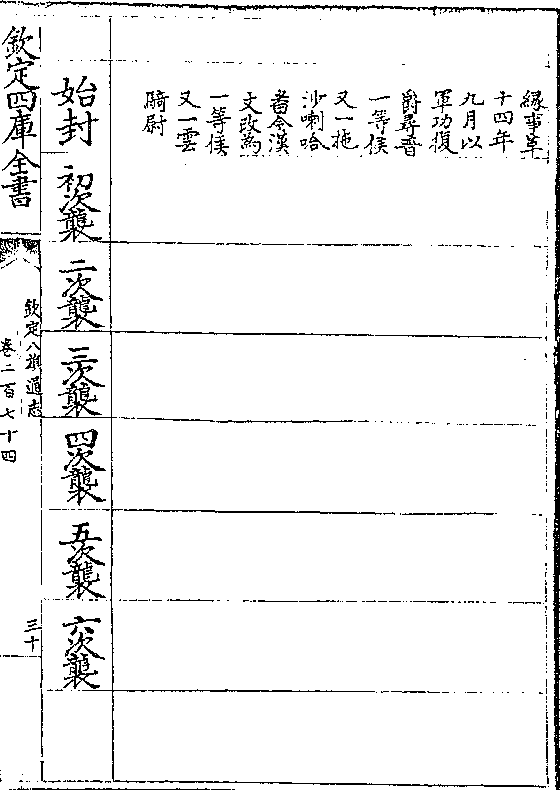 緣事革
十四年
九月以
軍功復
爵尋晉
一等侯
又一拖
沙喇哈
畨今漢
文改為
一等侯
又一雲
騎尉
始封
初次襲
二次襲
三次襲
四次襲
五次襲
六次襲
欽定四庫全書
欽定八旗通志
卷二百七十四
三十